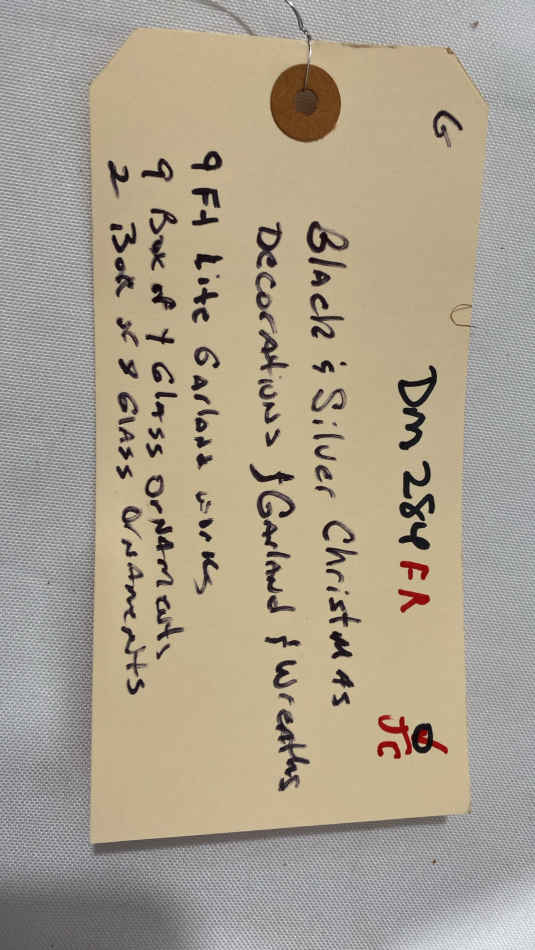 G
Dm 284 FR
JC
Black & Silver Christmas
Decorations & Garland & Wreaths
9 Ft Lite Garland works
9 Box of 4 Glass Ornaments
2 Box of 8 Glass Ornaments